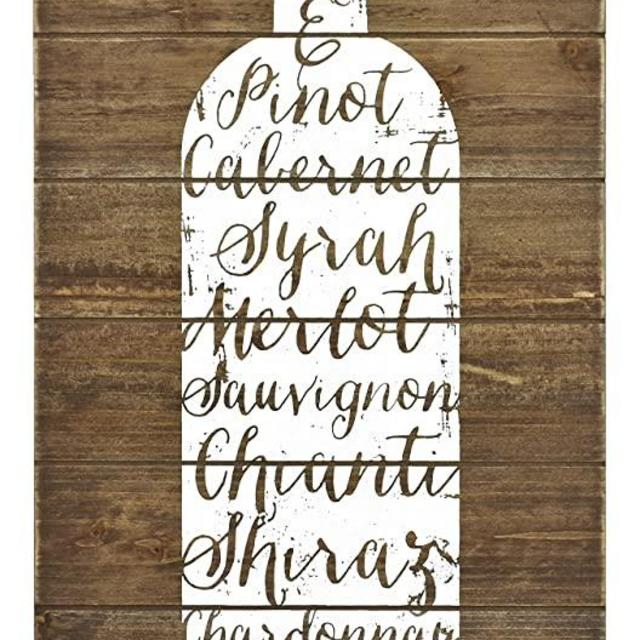 E
Pinot
Cabernet
Syrah
Merlot
Sauvignon
Chianti
Shiraz
Chardonnay